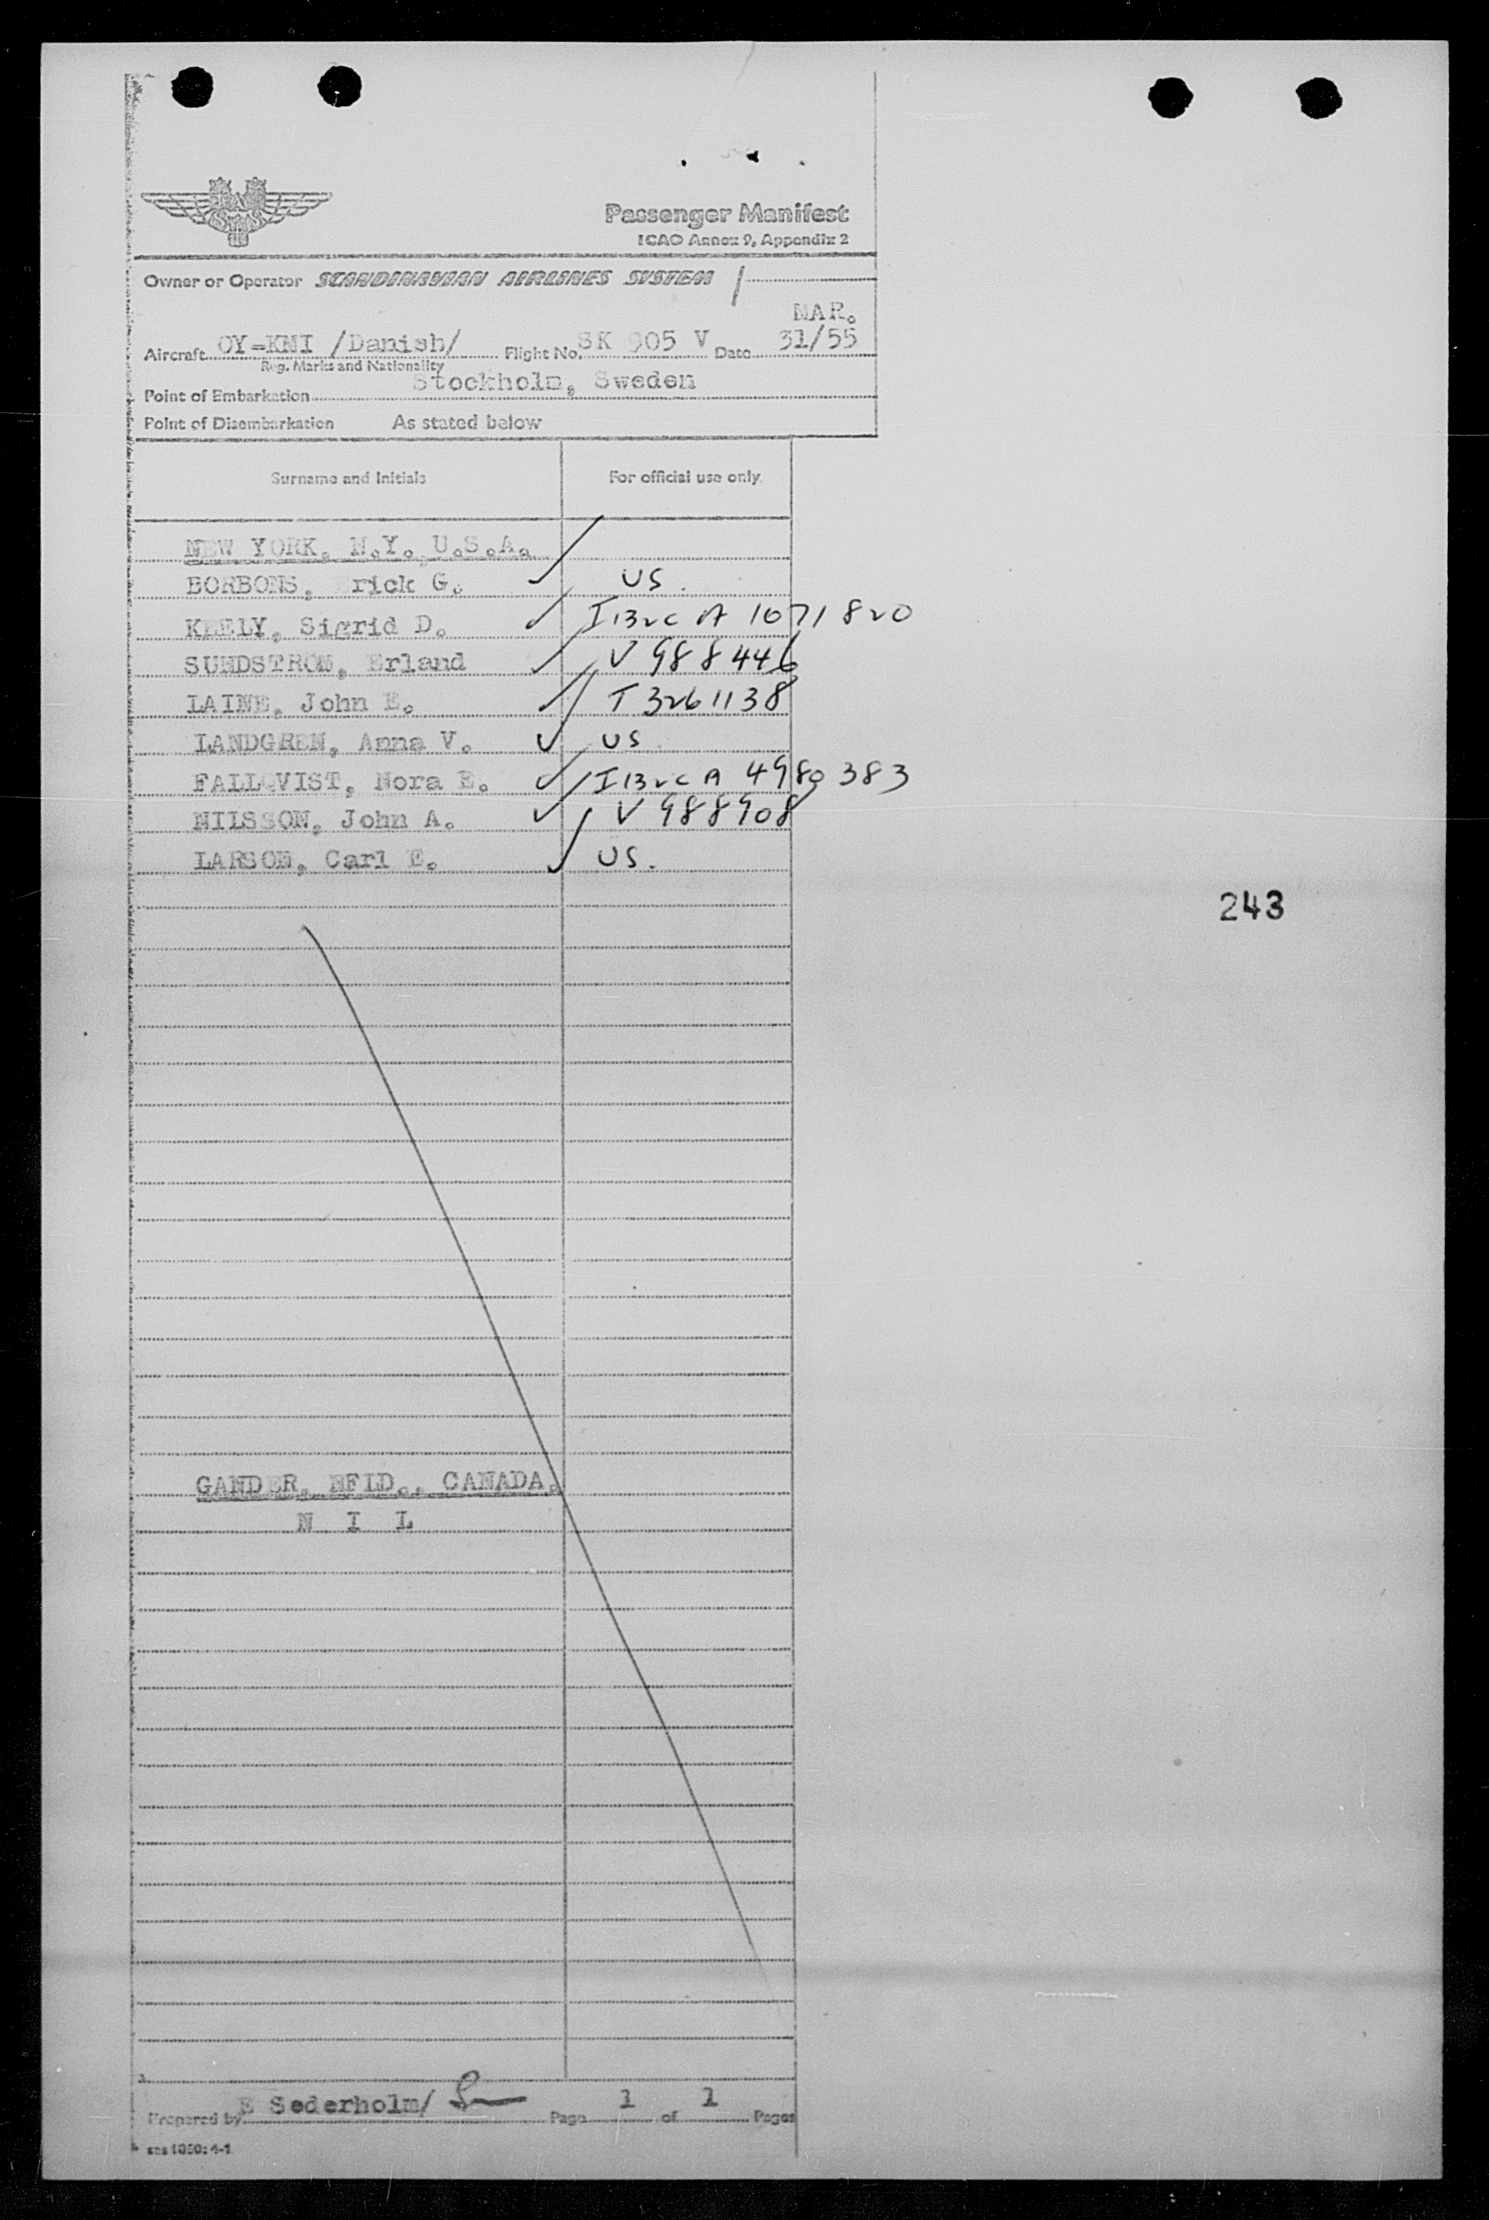 Passenger Manifest
ICAO Annex 9, Appendix 2
Owner or Operator SCANDINAVIAN AIRLINES SYSTEM
MAR.
Aircraft OY-KMI /Danish/ Flight No. SK 905 V Date 31/55
Reg. Marks and Nationality
Point of Embarkation Stockholm, Sweden
Point of Disembarkation As stated below
Surname and Initials For official use only
NEW YORK, N.Y., U.S.A.
BORBONS, rick G. US.
KEELY, Sigrid D. I132c A 1071820
SUNDSTROM, Erland V 988446
LAINE, John E. T 3261138
LANDGREN, Anna V. US
FALLQVIST, Nora E. I132c A 4980383
NILSSON, John A. V 988908
LARSON, Carl E. US.
243
GANDER, NFLD., CANADA.
N I L
Prepared by E Sederholm/ Page 1 of 1 Pages